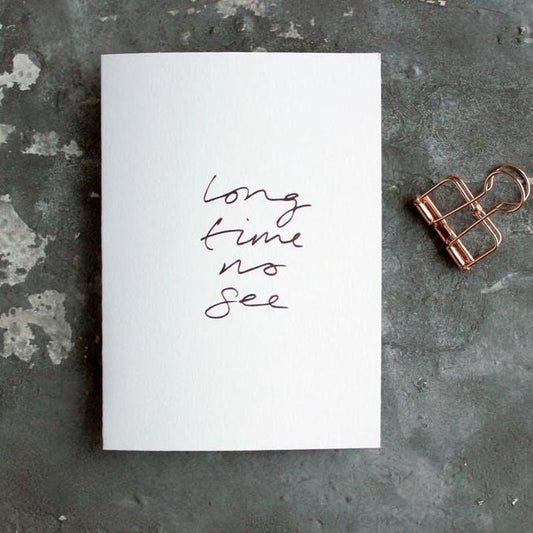 long
time
no
see